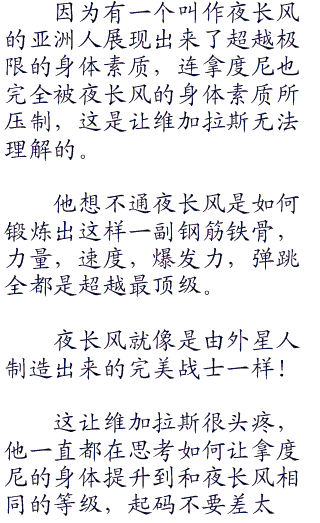 因为有一个叫作夜长风
的亚洲人展现出来了超越极
限的身体素质，连拿度尼也
完全被夜长风的身体素质所
压制，这是让维加拉斯无法
理解的。
他想不通夜长风是如何
锻炼出这样一副钢筋铁骨，
力量，速度，爆发力，弹跳
全都是超越最顶级。
夜长风就像是由外星人
制造出来的完美战士一样！
这让维加拉斯很头疼，
他一直都在思考如何让拿度
尼的身体提升到和夜长风相
同的等级，起码不要差太